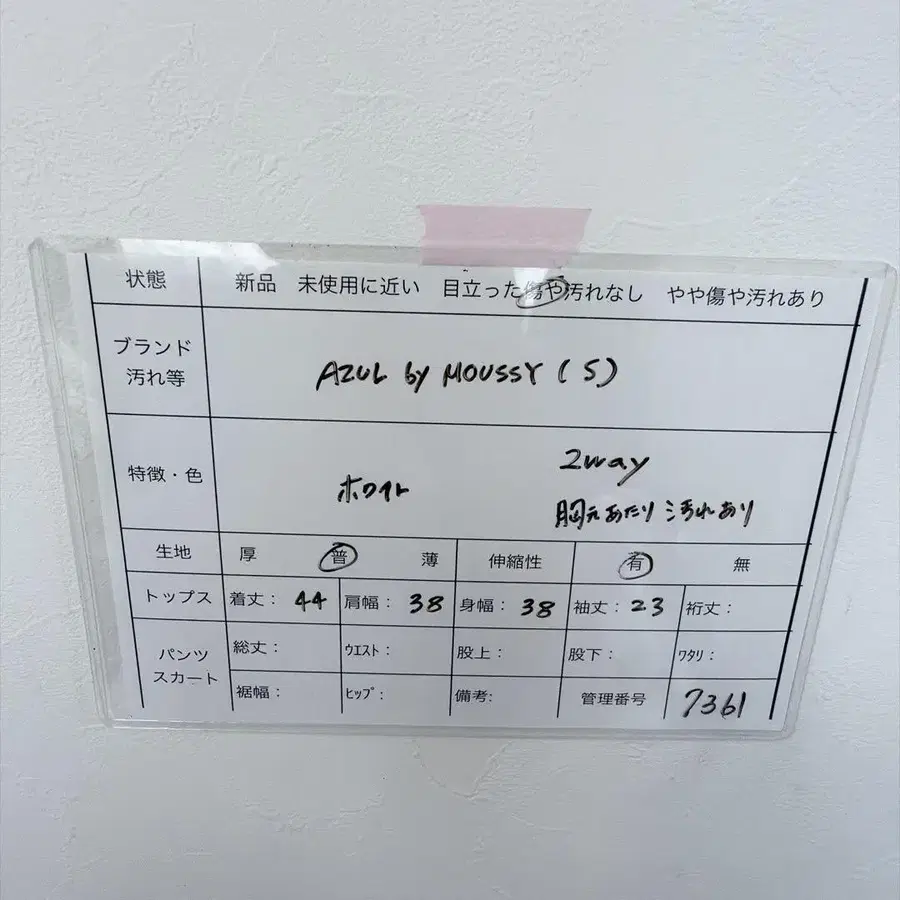 状態 新品 未使用に近い 目立った傷や汚れなし やや傷や汚れあり
ブランド
汚れ等
AZUL by MOUSSY (S)
特徴・色
ホワイト
2way
胸元あたり汚れあり
生地 厚 普 薄 伸縮性 有 無
トップス 着丈: 44 肩幅: 38 身幅: 38 袖丈: 23 裄丈:
パンツ
スカート
総丈: ウエスト: 股上: 股下: ワタリ:
裾幅: ヒップ: 備考: 管理番号 7361